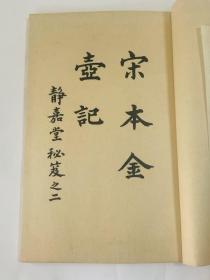 宋本金
壺記
靜嘉堂秘笈之二